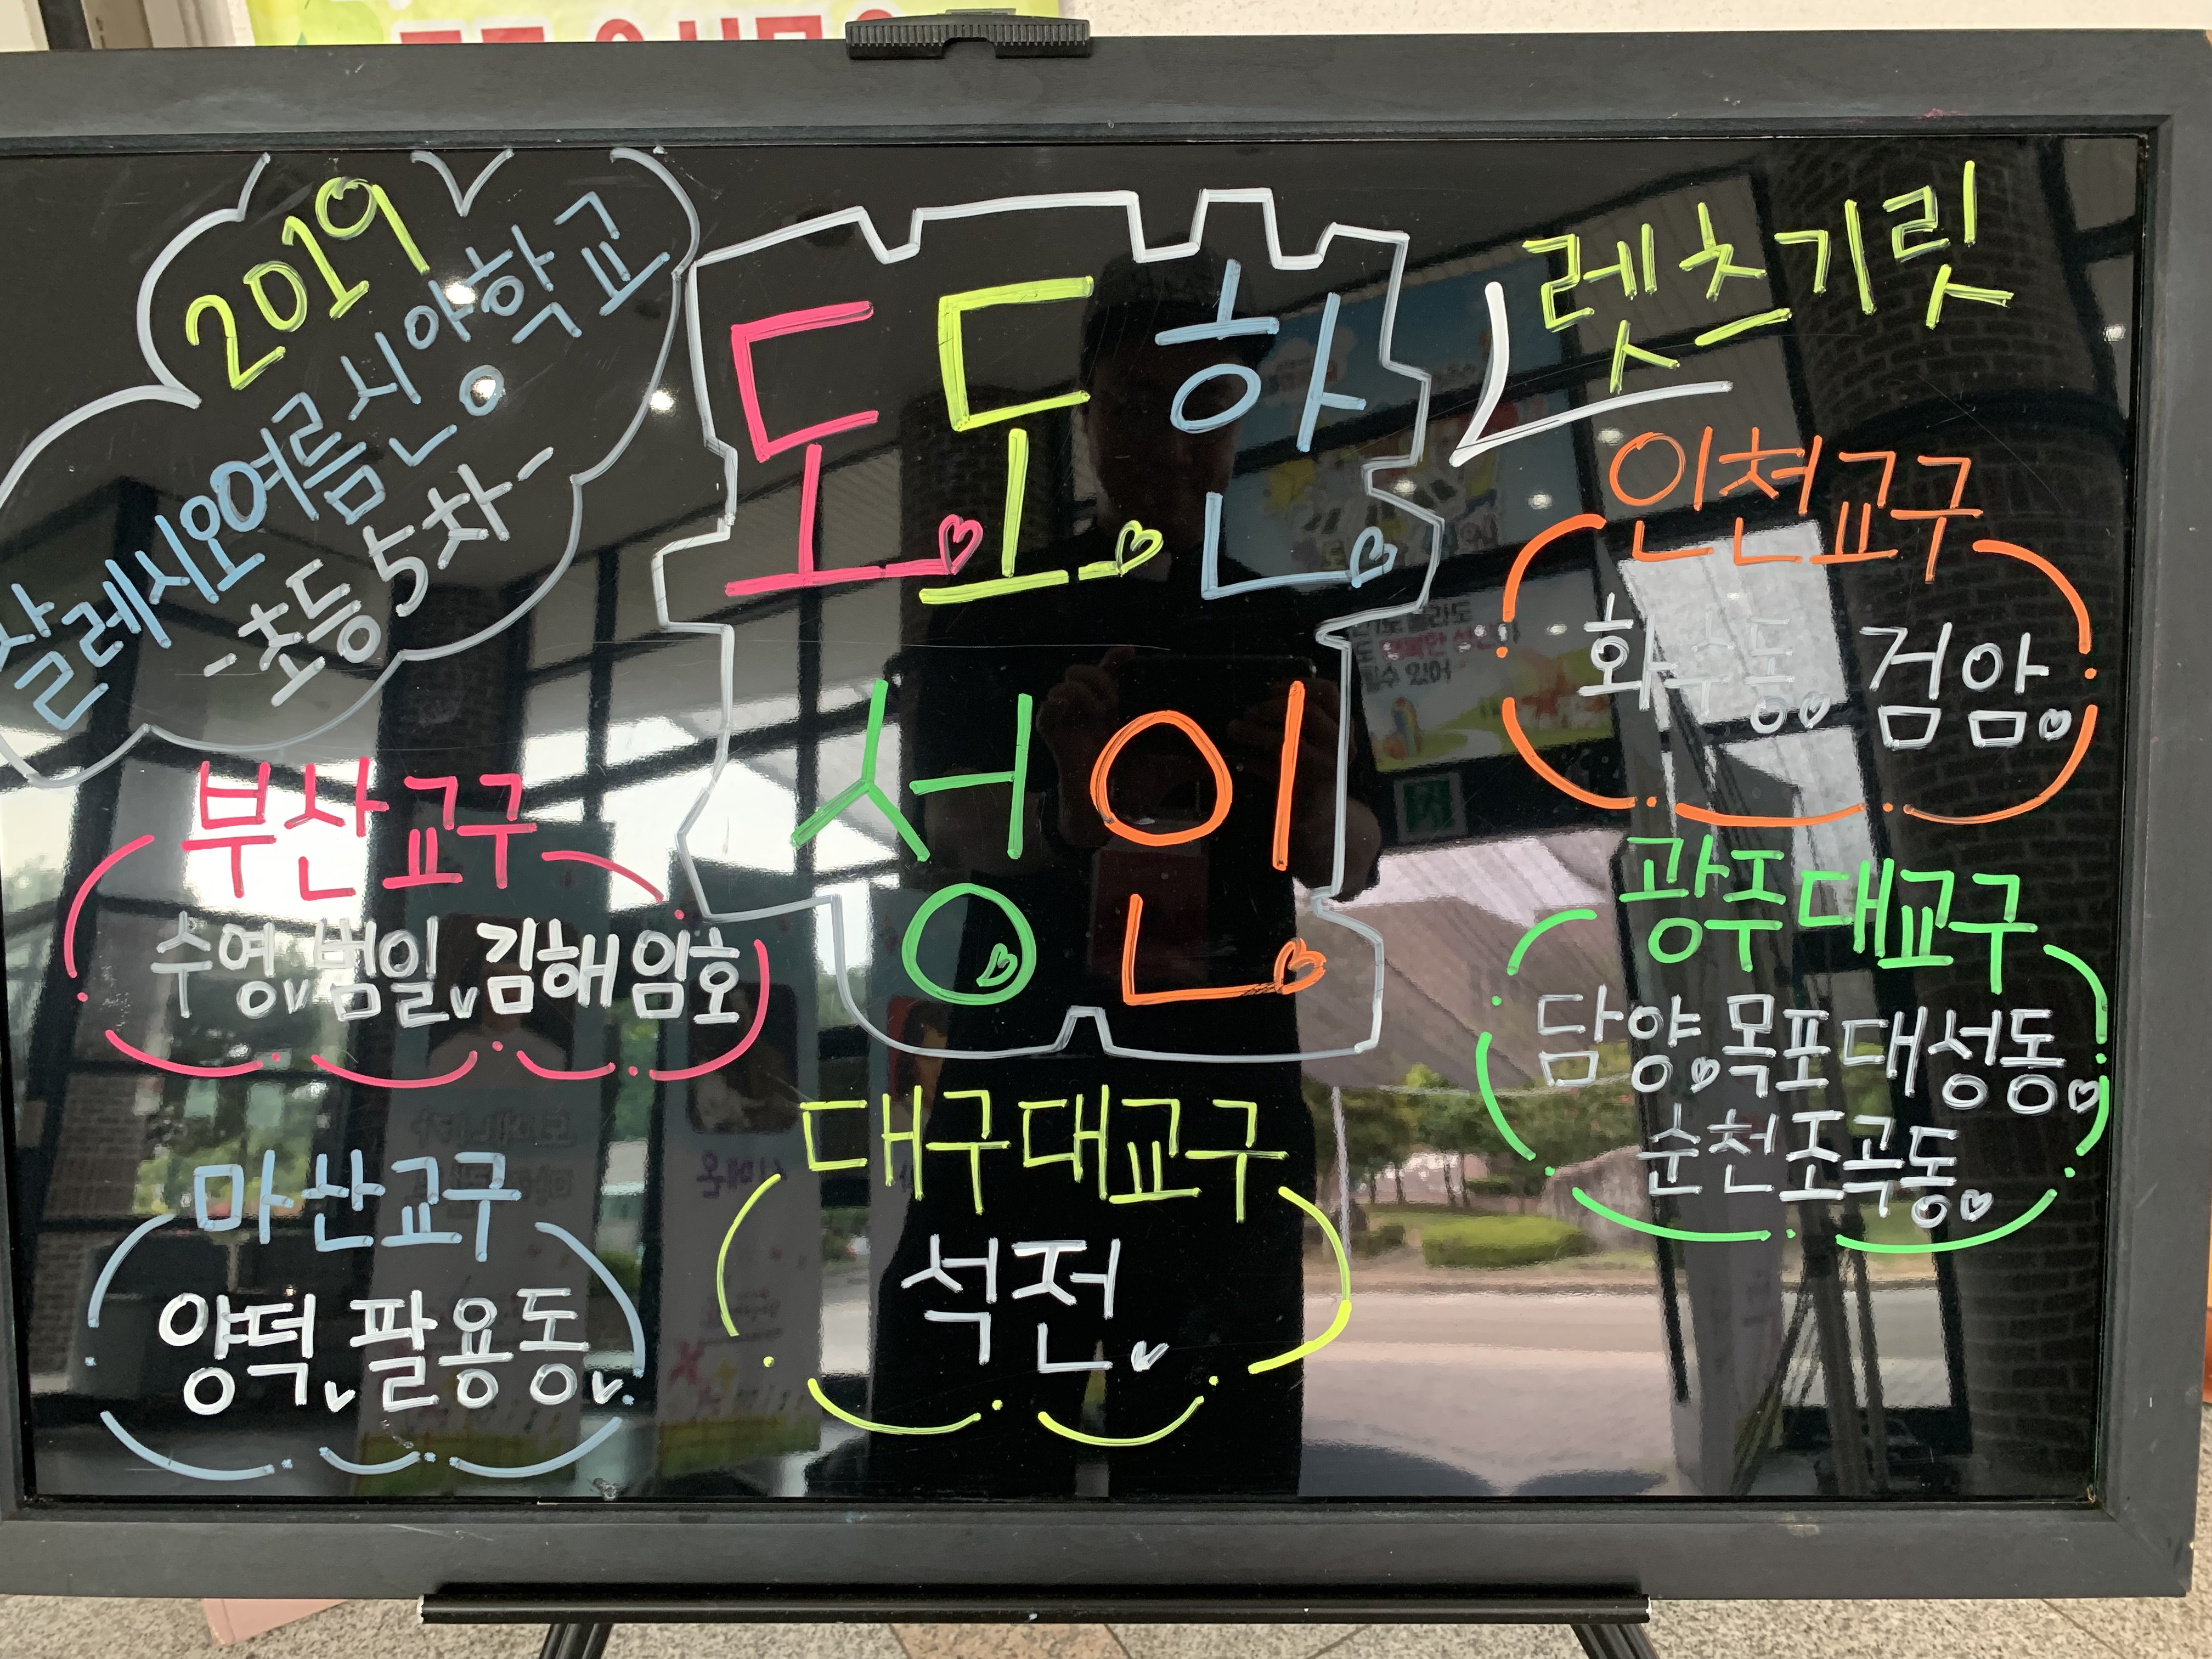 2019
살레시오여름신앙학교
-초등 5차-
도도한
성인
렛츠기릿
인천교구
화수동 검암
부산교구
수영 범일 김해 임호
광주대교구
담양 목포대성동
순천조곡동
마산교구
양덕 팔용동
대구대교구
석전